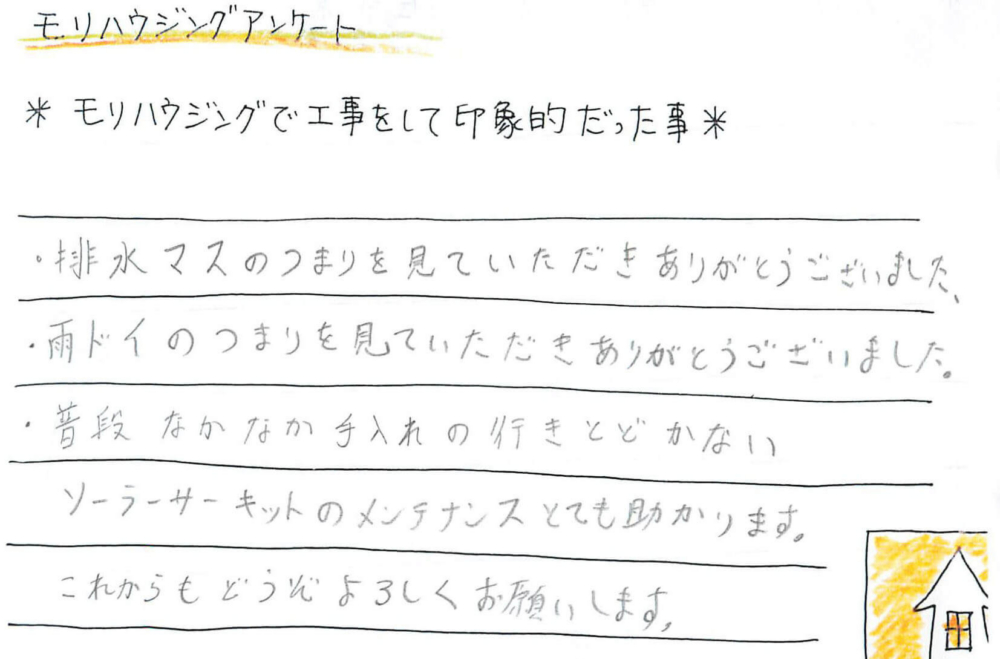 モリハウジングアンケート
＊ モリハウジングで工事をして印象的だった事＊
・排水マスのつまりを見ていただきありがとうございました、
・雨ドイのつまりを見ていただきありがとうございました。
・普段 なかなか手入れの行きとどかない
ソーラーサーキットのメンテナンスとても助かります。
これからもどうぞよろしくお願いします。